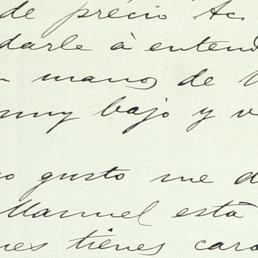 de precio
darle à entend
manos de
muy bajo y v
o gusto me d
Manuel está
nes tienes cara